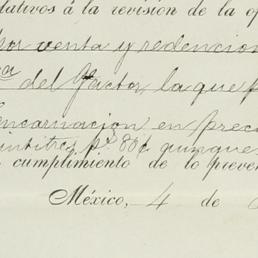 lativos á la revisión de la op
por venta y redencion
ca del Factor la que f
ncarnacion en preci
intitres ps 80¢ quinque
cumplimiento de lo preve
México, 4 de